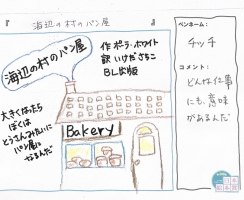 『 海辺の村のパン屋 』
海辺の村のパン屋
作 ポーラ・ホワイト
訳 いけださちこ
BL出版
大きくなったら
ぼくは
とうさんみたいに
パン屋に
なるんだ
Bakery
ペンネーム:
チッチ
コメント:
どんな仕事
にも、意味
があるんだ